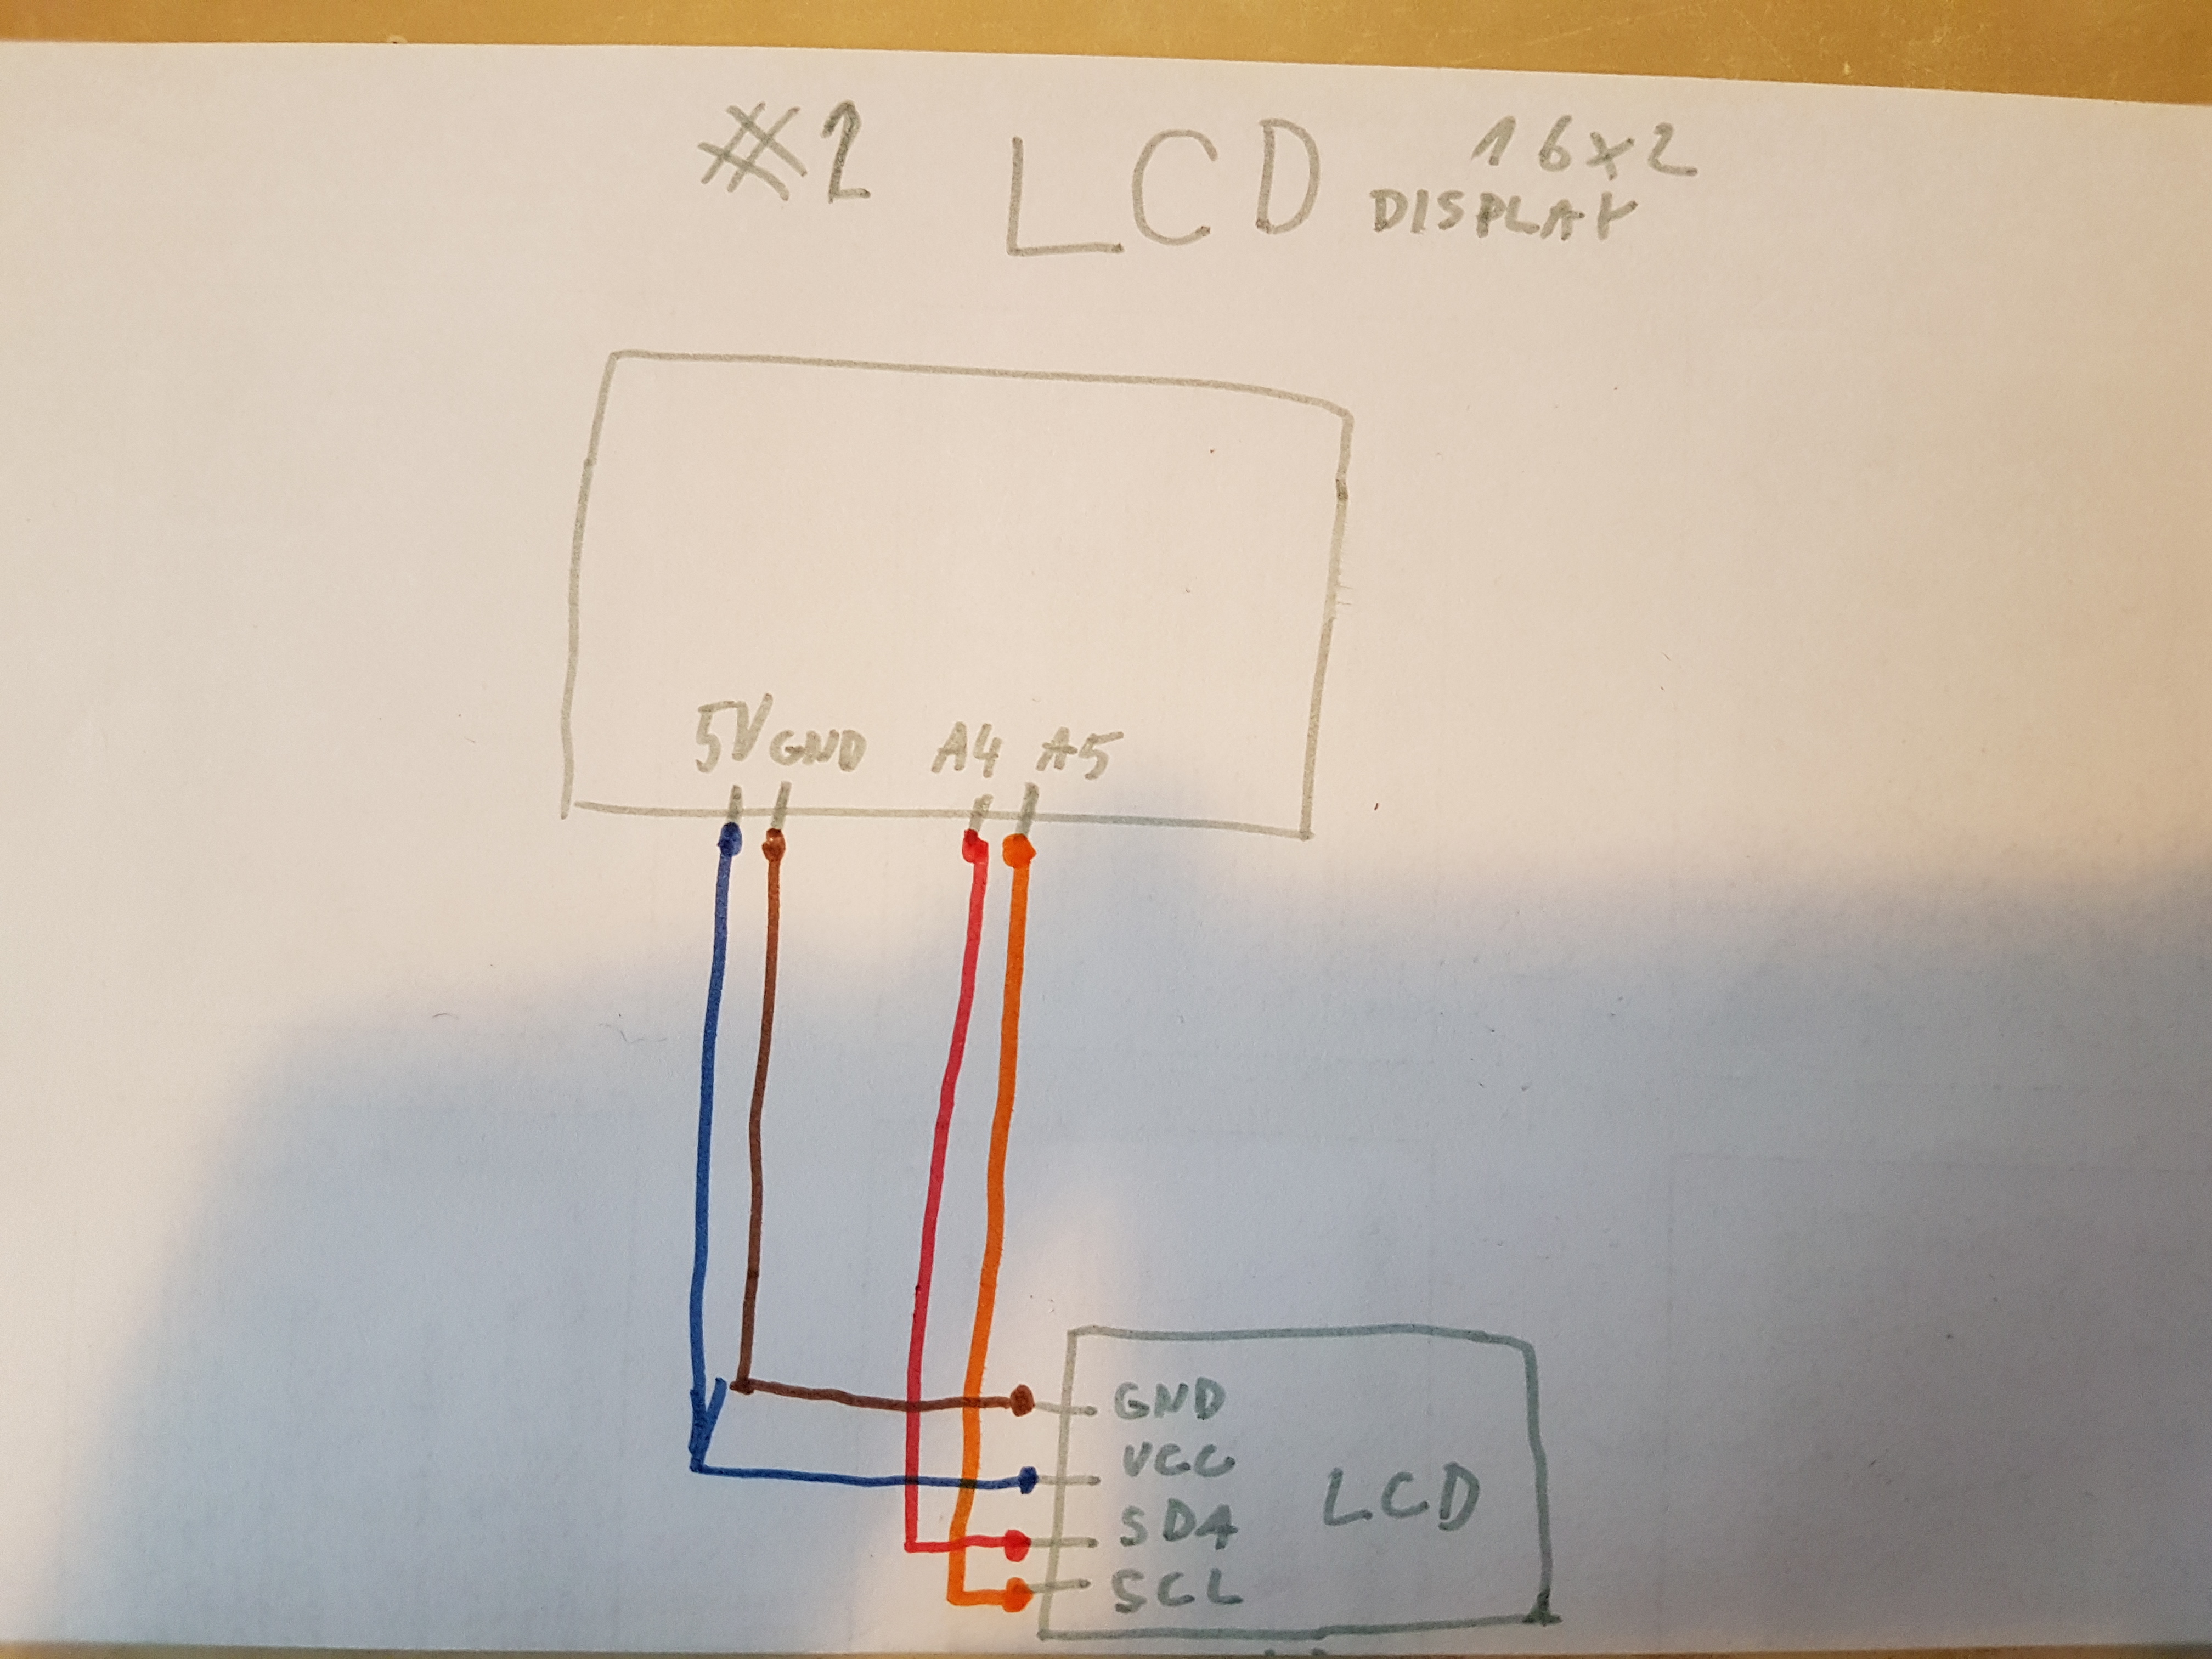 #2 LCD 16x2
DISPLAY
5V GND A4 A5
GND
VCC
SDA
LCD
SCL